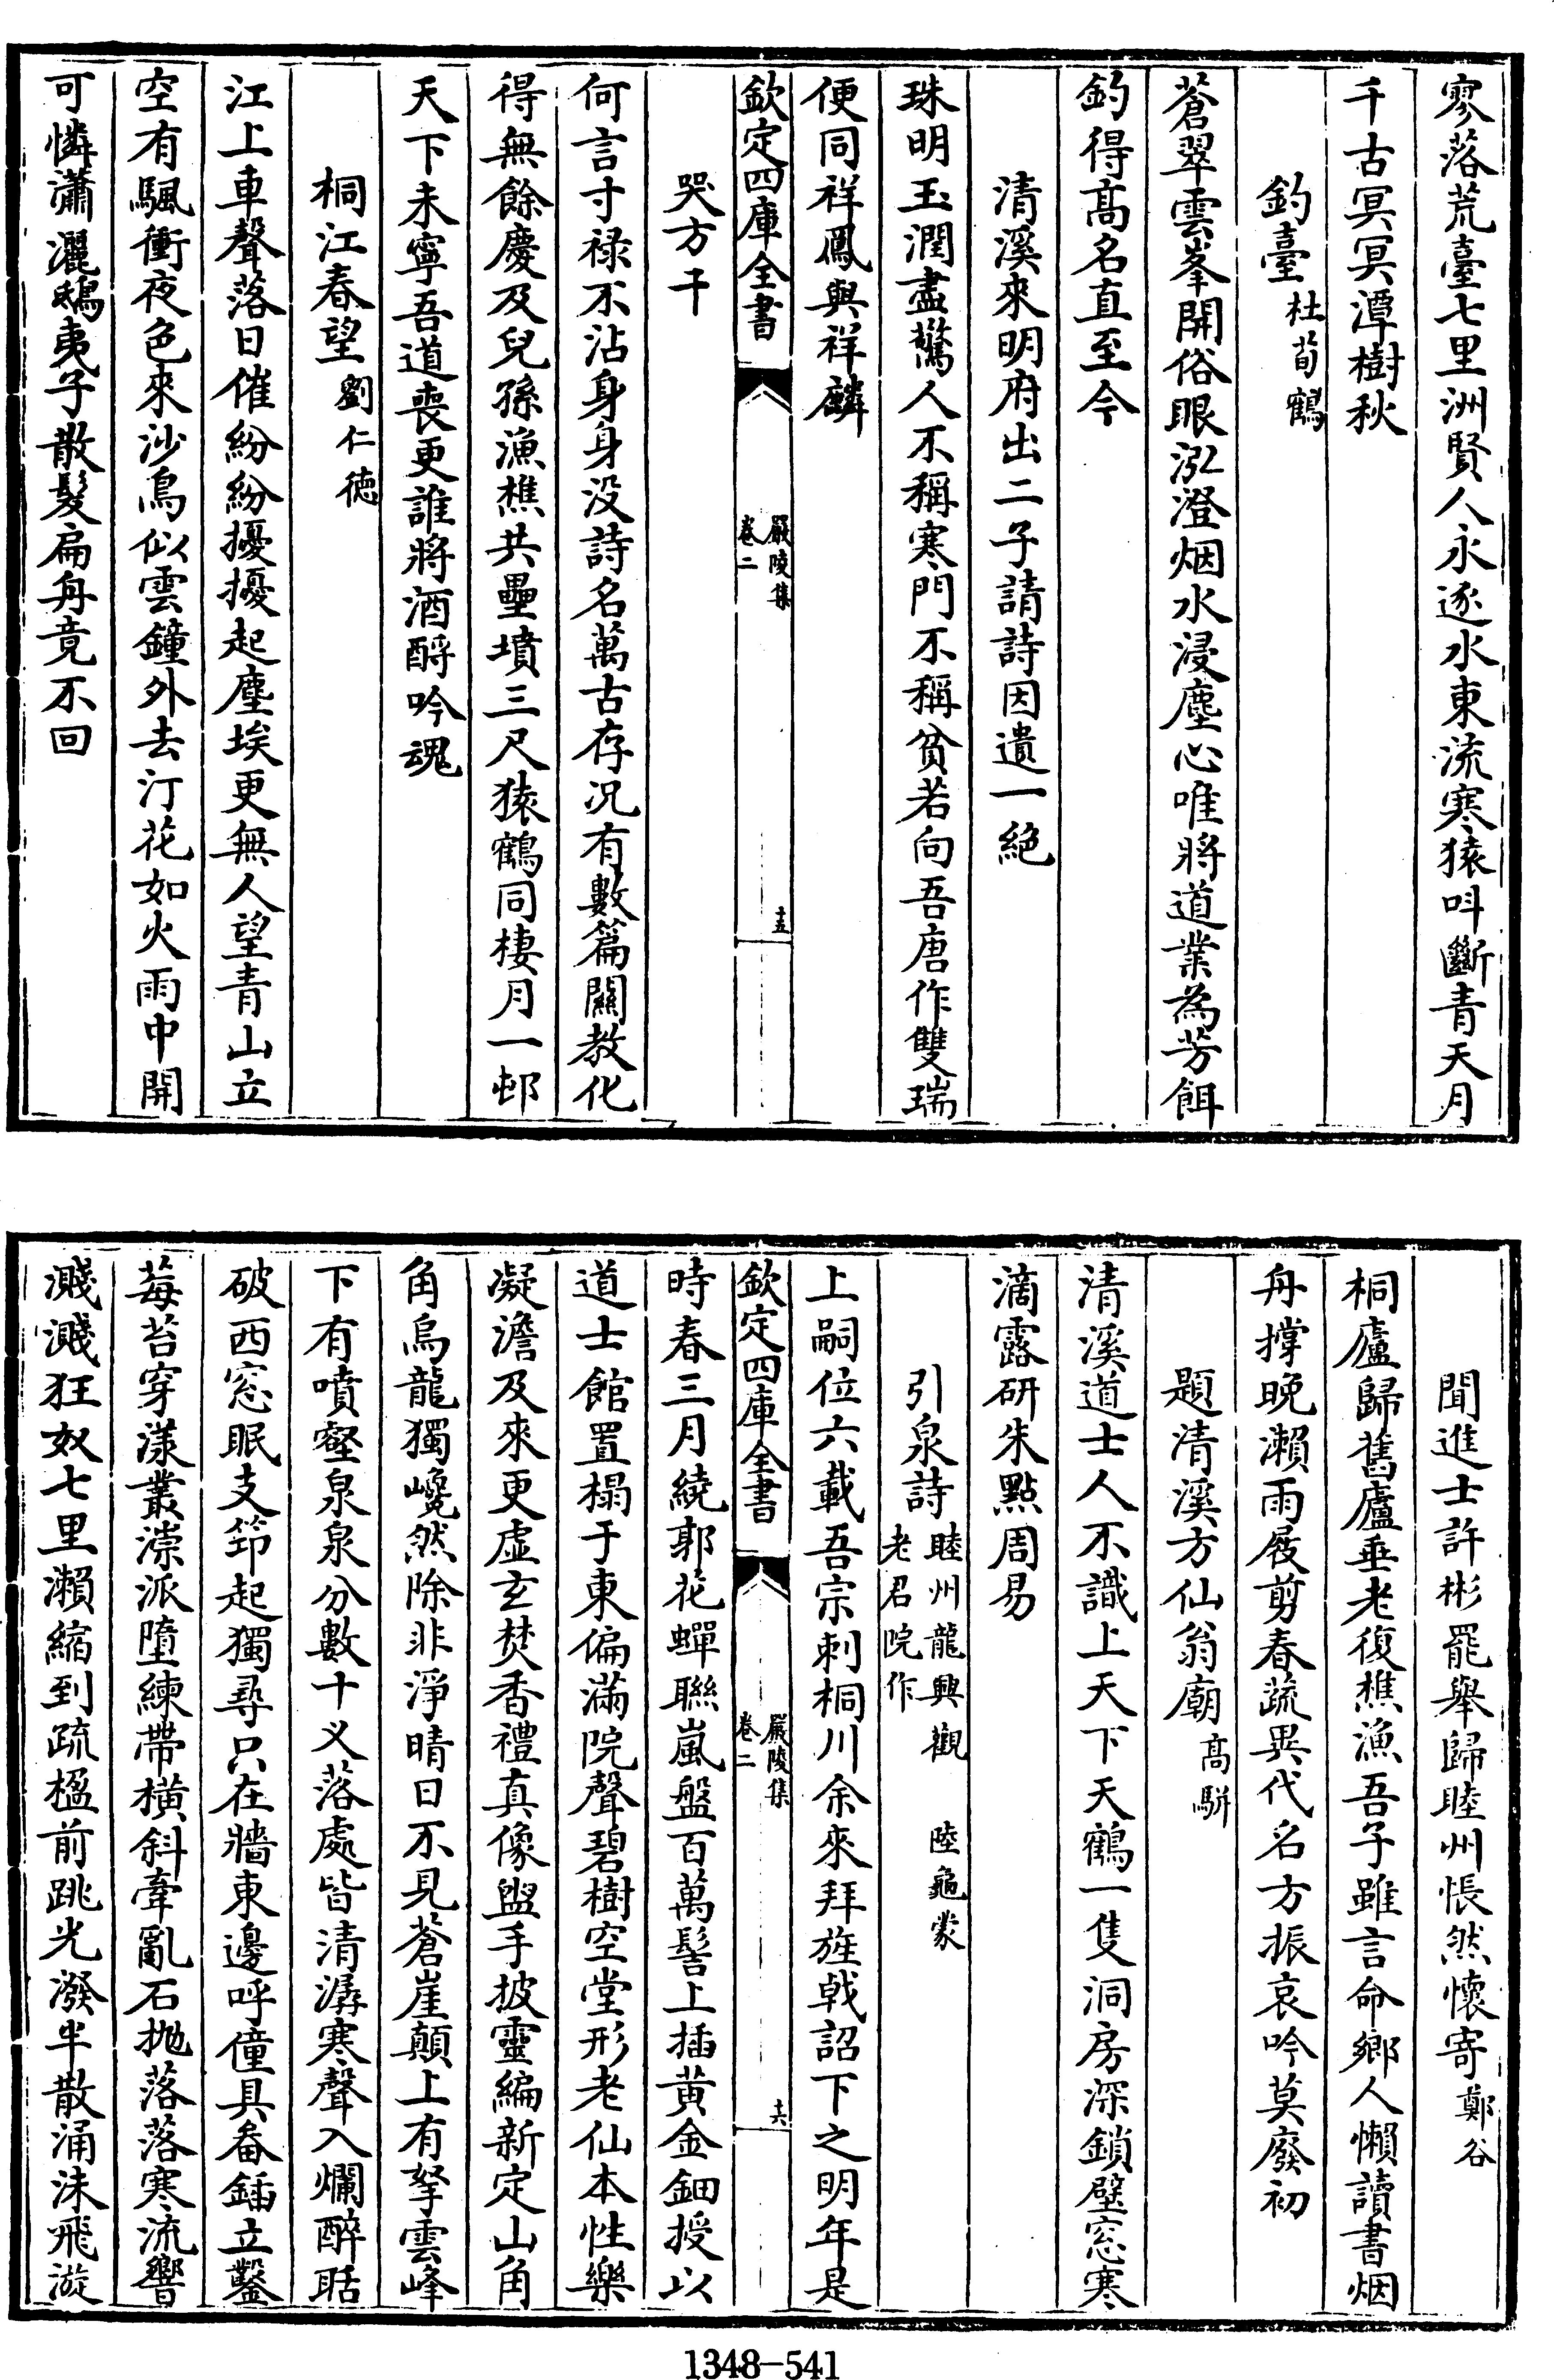 寥落荒臺七里洲賢人永逐水東流寒猿呌斷青天月
千古冥冥潭樹秋
釣臺杜荀鶴
蒼翠雲峯開俗眼泓澄烟水浸塵心唯將道業為芳餌
釣得髙名直至今
清溪來明府出二子請詩因遺一絶
珠明玉潤盡驚人不稱寒門不稱貧若向吾唐作雙瑞
便同祥鳳與祥麟
欽定四庫全書 嚴陵集卷二 十五
哭方干
何言寸禄不沾身身没詩名萬古存况有數篇關教化
得無餘慶及兒孫漁樵共壘墳三尺猿鶴同棲月一邨
天下未寧吾道喪更誰將酒酹吟魂
桐江春望劉仁徳
江上車聲落日催紛紛擾擾起塵埃更無人望青山立
空有颿衝夜色來沙鳥似雲鐘外去汀花如火雨中開
可憐瀟灑鴟夷子散髮扁舟竟不回
聞進士許彬罷舉歸睦州悵然懷寄鄭谷
桐廬歸舊廬垂老復樵漁吾子雖言命鄉人懶讀書烟
舟撑晚瀨雨屐剪春蔬異代名方振哀吟莫廢初
題清溪方仙翁廟髙駢
清溪道士人不識上天下天鶴一隻洞房深鎖壁窓寒
滴露研朱點周易
引泉詩睦州龍興觀老君院作 陸龜蒙
上嗣位六載吾宗刺桐川余來拜旌戟詔下之明年是
欽定四庫全書 嚴陵集卷二 十六
時春三月繞郭花蟬聯嵐盤百萬髻上插黄金鈿授以
道士館置榻于東偏滿院聲碧樹空堂形老仙本性樂
凝澹及來更虚玄焚香禮真像盥手披靈編新定山角
角烏龍獨巉然除非淨晴日不見蒼崖顛上有拏雲峰
下有噴壑泉泉分數十义落處皆清潺寒聲入爛醉聒
破西窓眠支筇起獨尋只在牆東邊呼僮具畚鍤立鑿
莓苔穿漾叢漴派墮練帶横斜牽亂石拋落落寒流響
濺濺狂奴七里瀨縮到疏楹前跳光潑半散涌沫飛漩
1348-541